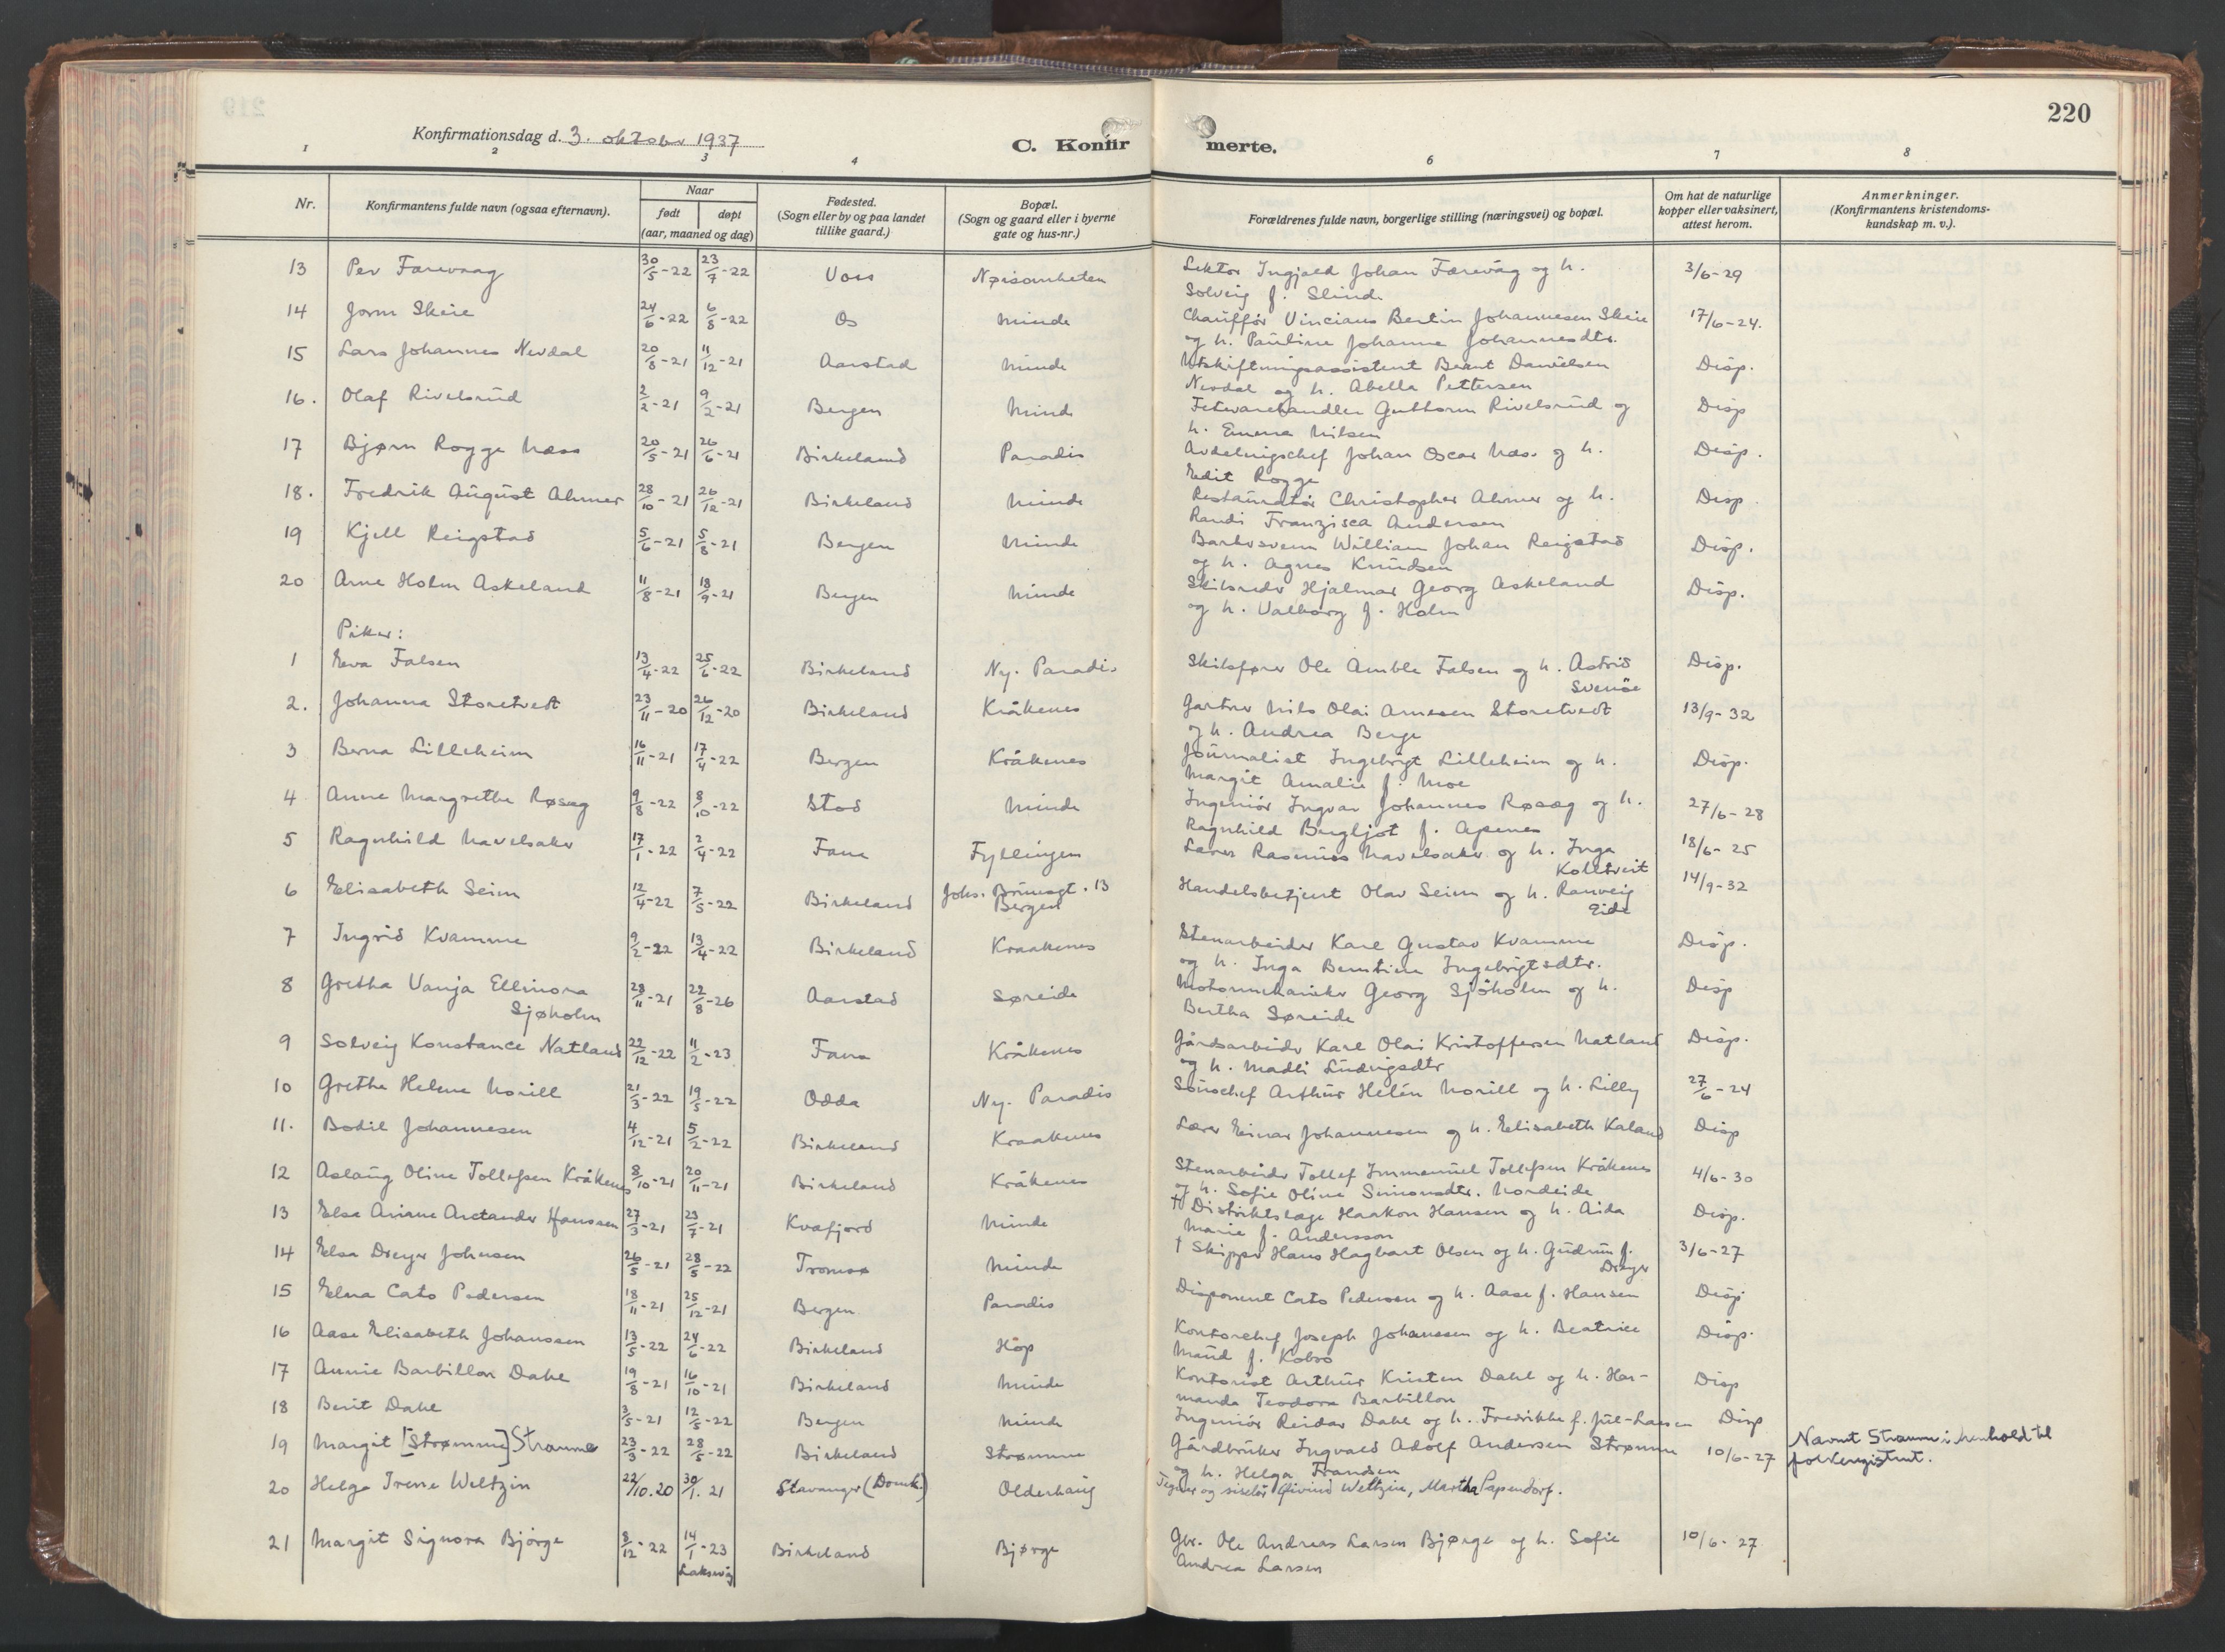 220
Konfirmationsdag d. 3. oktober 1937
C. Konfirmerte.
1 2 3 4 6 7 8
Nr. Konfirmantens fulde navn (ogsaa efternavn). Naar født døpt (aar, maaned og dag) Fødested. (Sogn eller by og paa landet tillike gaard.) Bopæl. (Sogn og gaard eller i byerne gate og hus-nr.) Forældrenes fulde navn, borgerlige stilling (næringsvei) og bopæl. Om hat de naturlige kopper eller vaksinert, attest herom. Anmerkninger. (Konfirmantens kristendoms-kundskap m. v.).
13 Per Farevaag 30/5-22 23/7-22 Voss Nøisomheten Lektor Ingjald Johan Farevåg og h. 3/6-29
Solveig f. Slinde
14 Jorm Skeie 24/6-22 6/8-22 Os Minde Chauffór Vincians Bertin Johannesen Skeie 17/6-24.
og h. Pauline Johanne Johannesdtr.
15 Lars Johannes Nevdal 20/8-21 11/12-21 Aarstad Minde Utskiftningsassistent Berent Danielsen Disp.
Nevdal og h. Abella Pettersen
16. Olaf Rivelsrud 2/2-21 9/2-21 Bergen Minde Fetevarehandler Guttorm Rivelsrud og Disp
h. Emma Nilsen
17 Bjørn Rogge Næss 20/5-21 26/6-21 Birkeland Paradis Avdelingschef Johan Oscar Næss og h. Disp.
Edit Rogge
18. Fredrik August Ahmer 28/10-21 26/12-21 Birkeland Minde Restauratør Christopher Ahmer og h. Disp.
Randi Franzisca Andersen
19 Kjell Reigstad 5/6-21 5/8-21 Bergen Minde Bankvsvenn William Johan Reigstad Disp.
og h. Agnes Knudsen
20 Arne Holm Askeland 11/8-21 18/9-21 Bergen Minde Skibsreder Hjalmar Georg Askeland Disp.
og h. Valborg f. Holm
Piker:
1 Eva Falsen 13/4-22 25/6-22 Birkeland Ny. Paradis Skibsfører Ole Amble Falsen og h. Astrid Disp.
Svenöe
2. Johanna Storetvedt 23/11-20 26/12-20 Birkeland Kråkenes Gartner Nils Olai Arnesen Storetvedt 13/9-32
og h. Andrea Berge
3 Berna Lilleheim 16/11-21 17/4-22 Bergen Kråkenes Journalist Ingebrigt Lilleheim og h. Disp.
Margit Amalie f. Moe
4 Anne Margrethe Røsæg 9/8-22 8/10-22 Stod Minde Ingeniör Ingvar Johannes Røsæg og h. 27/6-28
Ragnhild Bergljot f. Apenes
5 Ragnhild Navelsaker 17/1-22 2/4-22 Fana Fyllingen Lærer Rasmus Navelsaker og h. Inga 18/6-25
Koltveit
6 Elisabeth Seim 12/4-22 7/5-22 Birkeland Johs. Brunsgt. 13 Bergen Handelsbetjent Olav Seim og h. Ranveig 14/9-32
Eide
7 Ingrid Kvamme 9/2-22 13/4-22 Birkeland Kraakenes Stenarbeider Karl Gustav Kvamme Disp.
og h. Inga Berntine Ingebrigtsdtr.
8 Gretha Vanja Ellinora Sjøholm 28/11-21 22/8-26 Aarstad Søreide Motormekaniker Georg Sjöholm og h. Disp
Bertha Søreide
9 Solveig Konstance Natland 22/12-22 11/2-23 Fana Kråkenes Gårdsarbeider Karl Olai Kristoffersen Natland Disp.
og h. Madli Ludvigsdtr
10 Grethe Helene Norill 21/3-22 19/5-22 Odda Ny. Paradis Souschef Arthur Helén Norill og h. Lilly 27/6-24
11. Bodil Johannesen 4/12-21 5/2-22 Birkeland Kraakenes Lærer Einar Johannesen og h. Elisabeth Kaland Disp
12 Aslaug Oline Tollefsen Kråkenes 8/10-21 20/11-21 Birkeland Kråkenes Stenarbeider Tollef Immanuel Tollefsen Kråkenes 4/6-30
og h. Sofie Oline Simonsdtr. Nordeide
13 Else Ariane Arctander Hanssen 27/3-21 23/7-21 Kvæfjord Minde † Distriktslæge Haakon Hansen og h. Aida Disp.
Marie f. Andersson
14 Elsa Dreyer Johnsen 26/5-21 28/5-22 Tromsø Minde † Skipper Hans Hagbart Olsen og h. Gudrun f. 3/6-27
Dreyer
15 Elna Cato Pedersen 18/11-21 25/12-21 Bergen Paradis Disponent Cato Pedersen og h. Aase f. Hansen Disp
16 Aase Elisabeth Johanssen 13/5-22 24/6-22 Birkeland Höp Kontorchef Joseph Johanssen og h. Beatrice Disp.
Maud f. Kobro
17 Annie Barbillon Dahl 19/8-21 16/10-21 Birkeland Minde Kontorist Arthur Kristen Dahl og h. Har- Disp
manda Teodora Barbillon
18 Berit Dahl 3/5-21 12/5-22 Bergen Minde Ingeniör Reidar Dahl og h. Fredrikke f. Jul-Larsen Disp
19 Margit [Strømme] Straume 23/3-22 28/5-22 Birkeland Strømme Gårdbruker Ingvald Adolf Andersen Strømme 10/6-27 Navnet Straume i henhold til
og h. Helga Frandsen folkeregistret.
20 Helga Irene Weltzin 22/10.20 30/1.21 Stavanger (Domk.) Olderhaug Tegner og siselør Eivind Weltzin, Martha Papendorf.
21 Margit Signora Bjørge 8/12-22 14/1-23 Laksevåg Birkeland Bjørge Gbr. Ole Andreas Larsen Bjørge og h. Sofie 10/6-27
Andrea Larsen